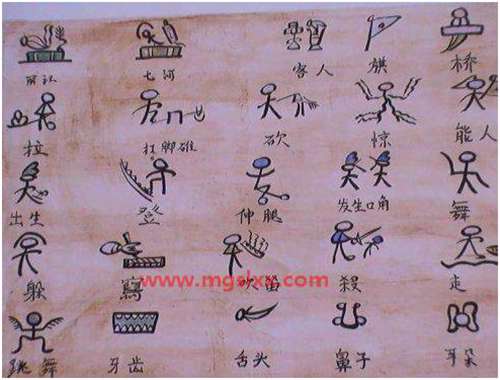 客人 旗 桥
拉 打脚碓 砍 惊 能人
出生 登 伸腿 发生口角 舞
躲 寫 吹笛 殺 走
www.mgslxy.com
跳舞 牙齿 舌头 鼻子 耳朵